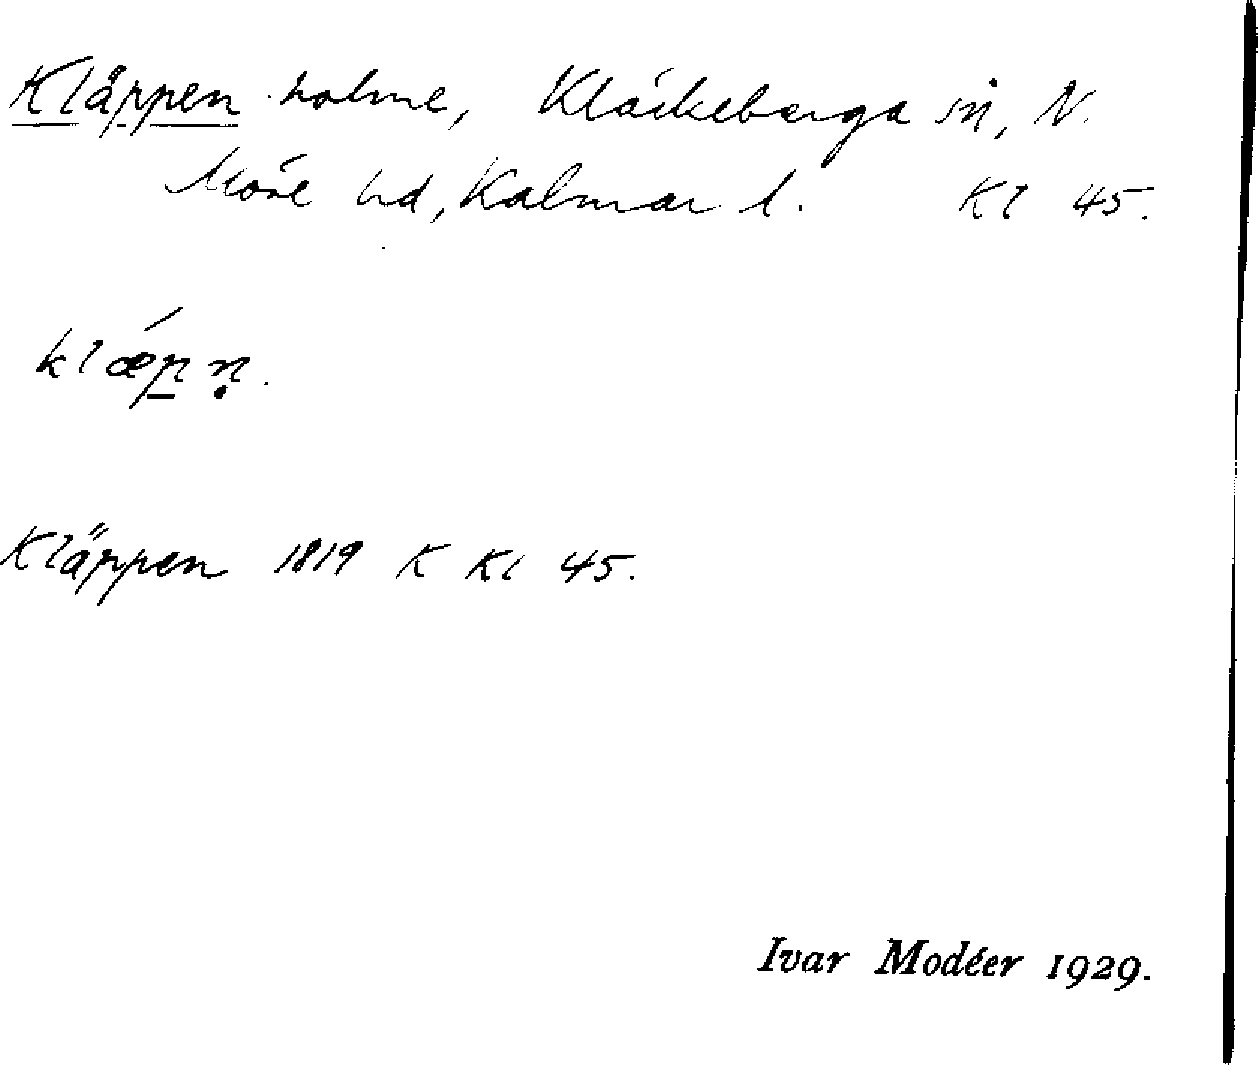 Kläppen holme, Kläckeberga sn, N.
Möre hd, Kalmar l. Kl 45.
klǽp̲ ṇ.
Kläppen 1819 K Kl 45.
Ivar Modéer 1929.